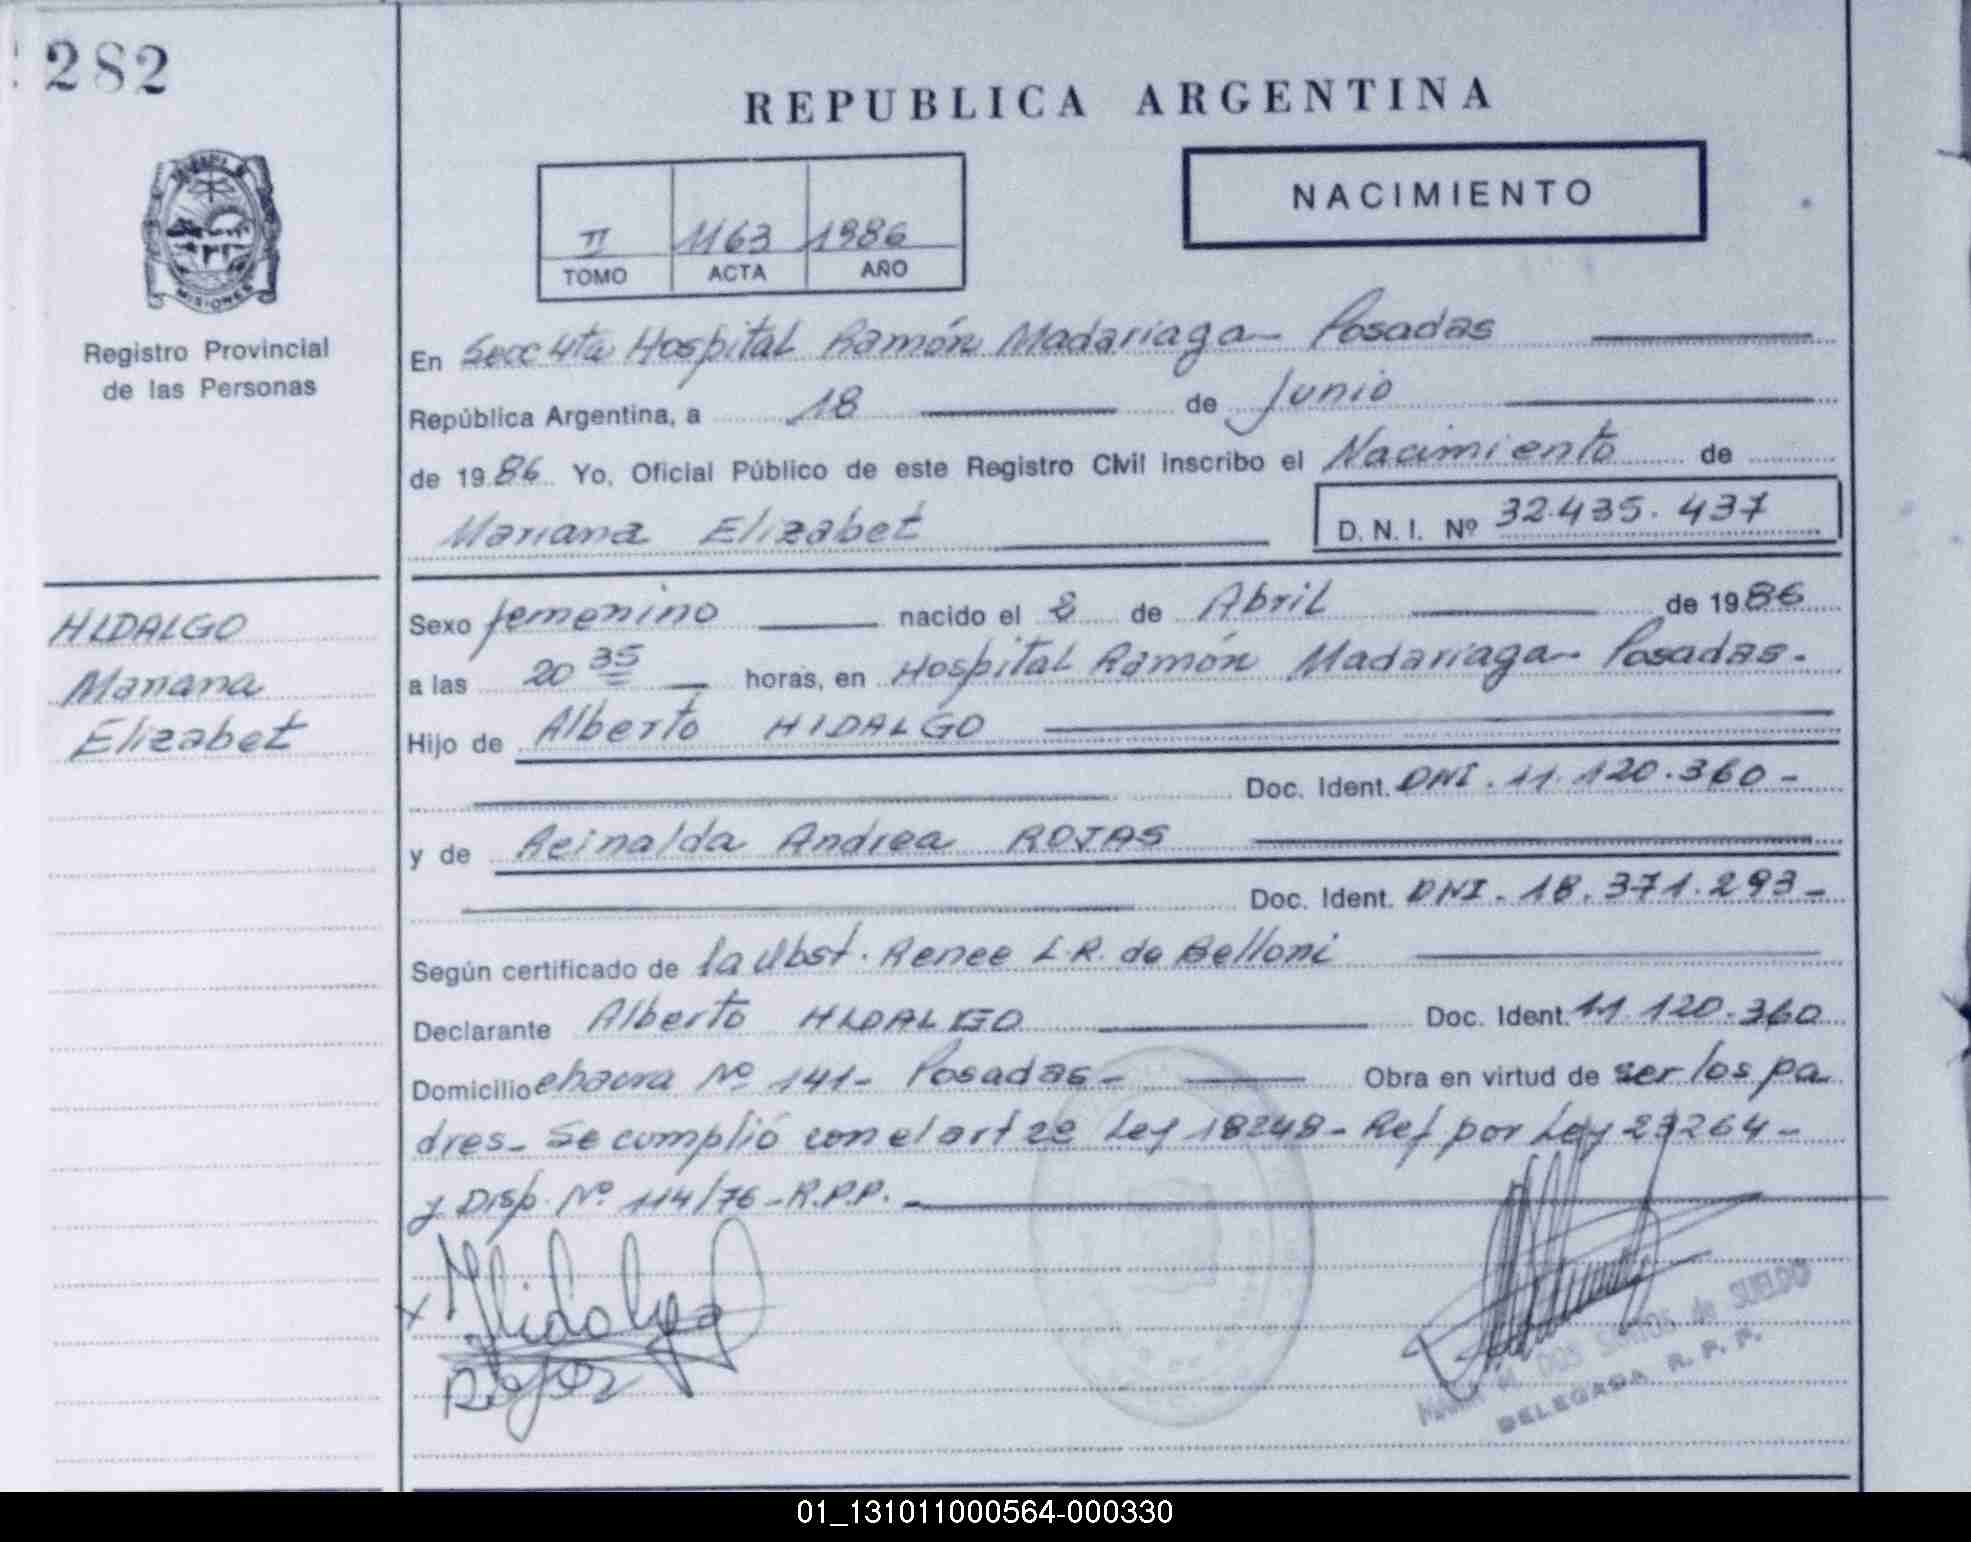 282
REPUBLICA ARGENTINA
NACIMIENTO
II 1163 1986
TOMO ACTA AÑO
MISIONES
Registro Provincial
de las Personas
En Secc 4ta Hospital Ramón Madariaga- Posadas
República Argentina, a 18 de Junio
de 1986 Yo, Oficial Público de este Registro Civil inscribo el Nacimiento de
Mariana Elizabet D. N. I. Nº 32.435.437
HIDALGO
Mariana
Elizabet
Sexo femenino nacido el 2 de Abril de 1986
a las 20 35 horas, en Hospital Ramón Madariaga- Posadas-
Hijo de Alberto HIDALGO
Doc. Ident. DNI. 11.120.360-
y de Reinalda Andrea ROJAS
Doc. Ident. DNI. 18.371.293-
Según certificado de la Obst. Renee L.R. de Belloni
Declarante Alberto HIDALGO Doc. Ident. 11.120.360
Domicilio chacra Nº 141- Posadas- Obra en virtud de ser los pa
dres- Se cumplió con el art 2º Ley 18248- Ref por Ley 23264-
y Disp. Nº 114/76-R.P.P.
Hidalgo
Rojas
DOS SANTOS de SUELDO
DELEGADA R. P. P.
01_131011000564-000330